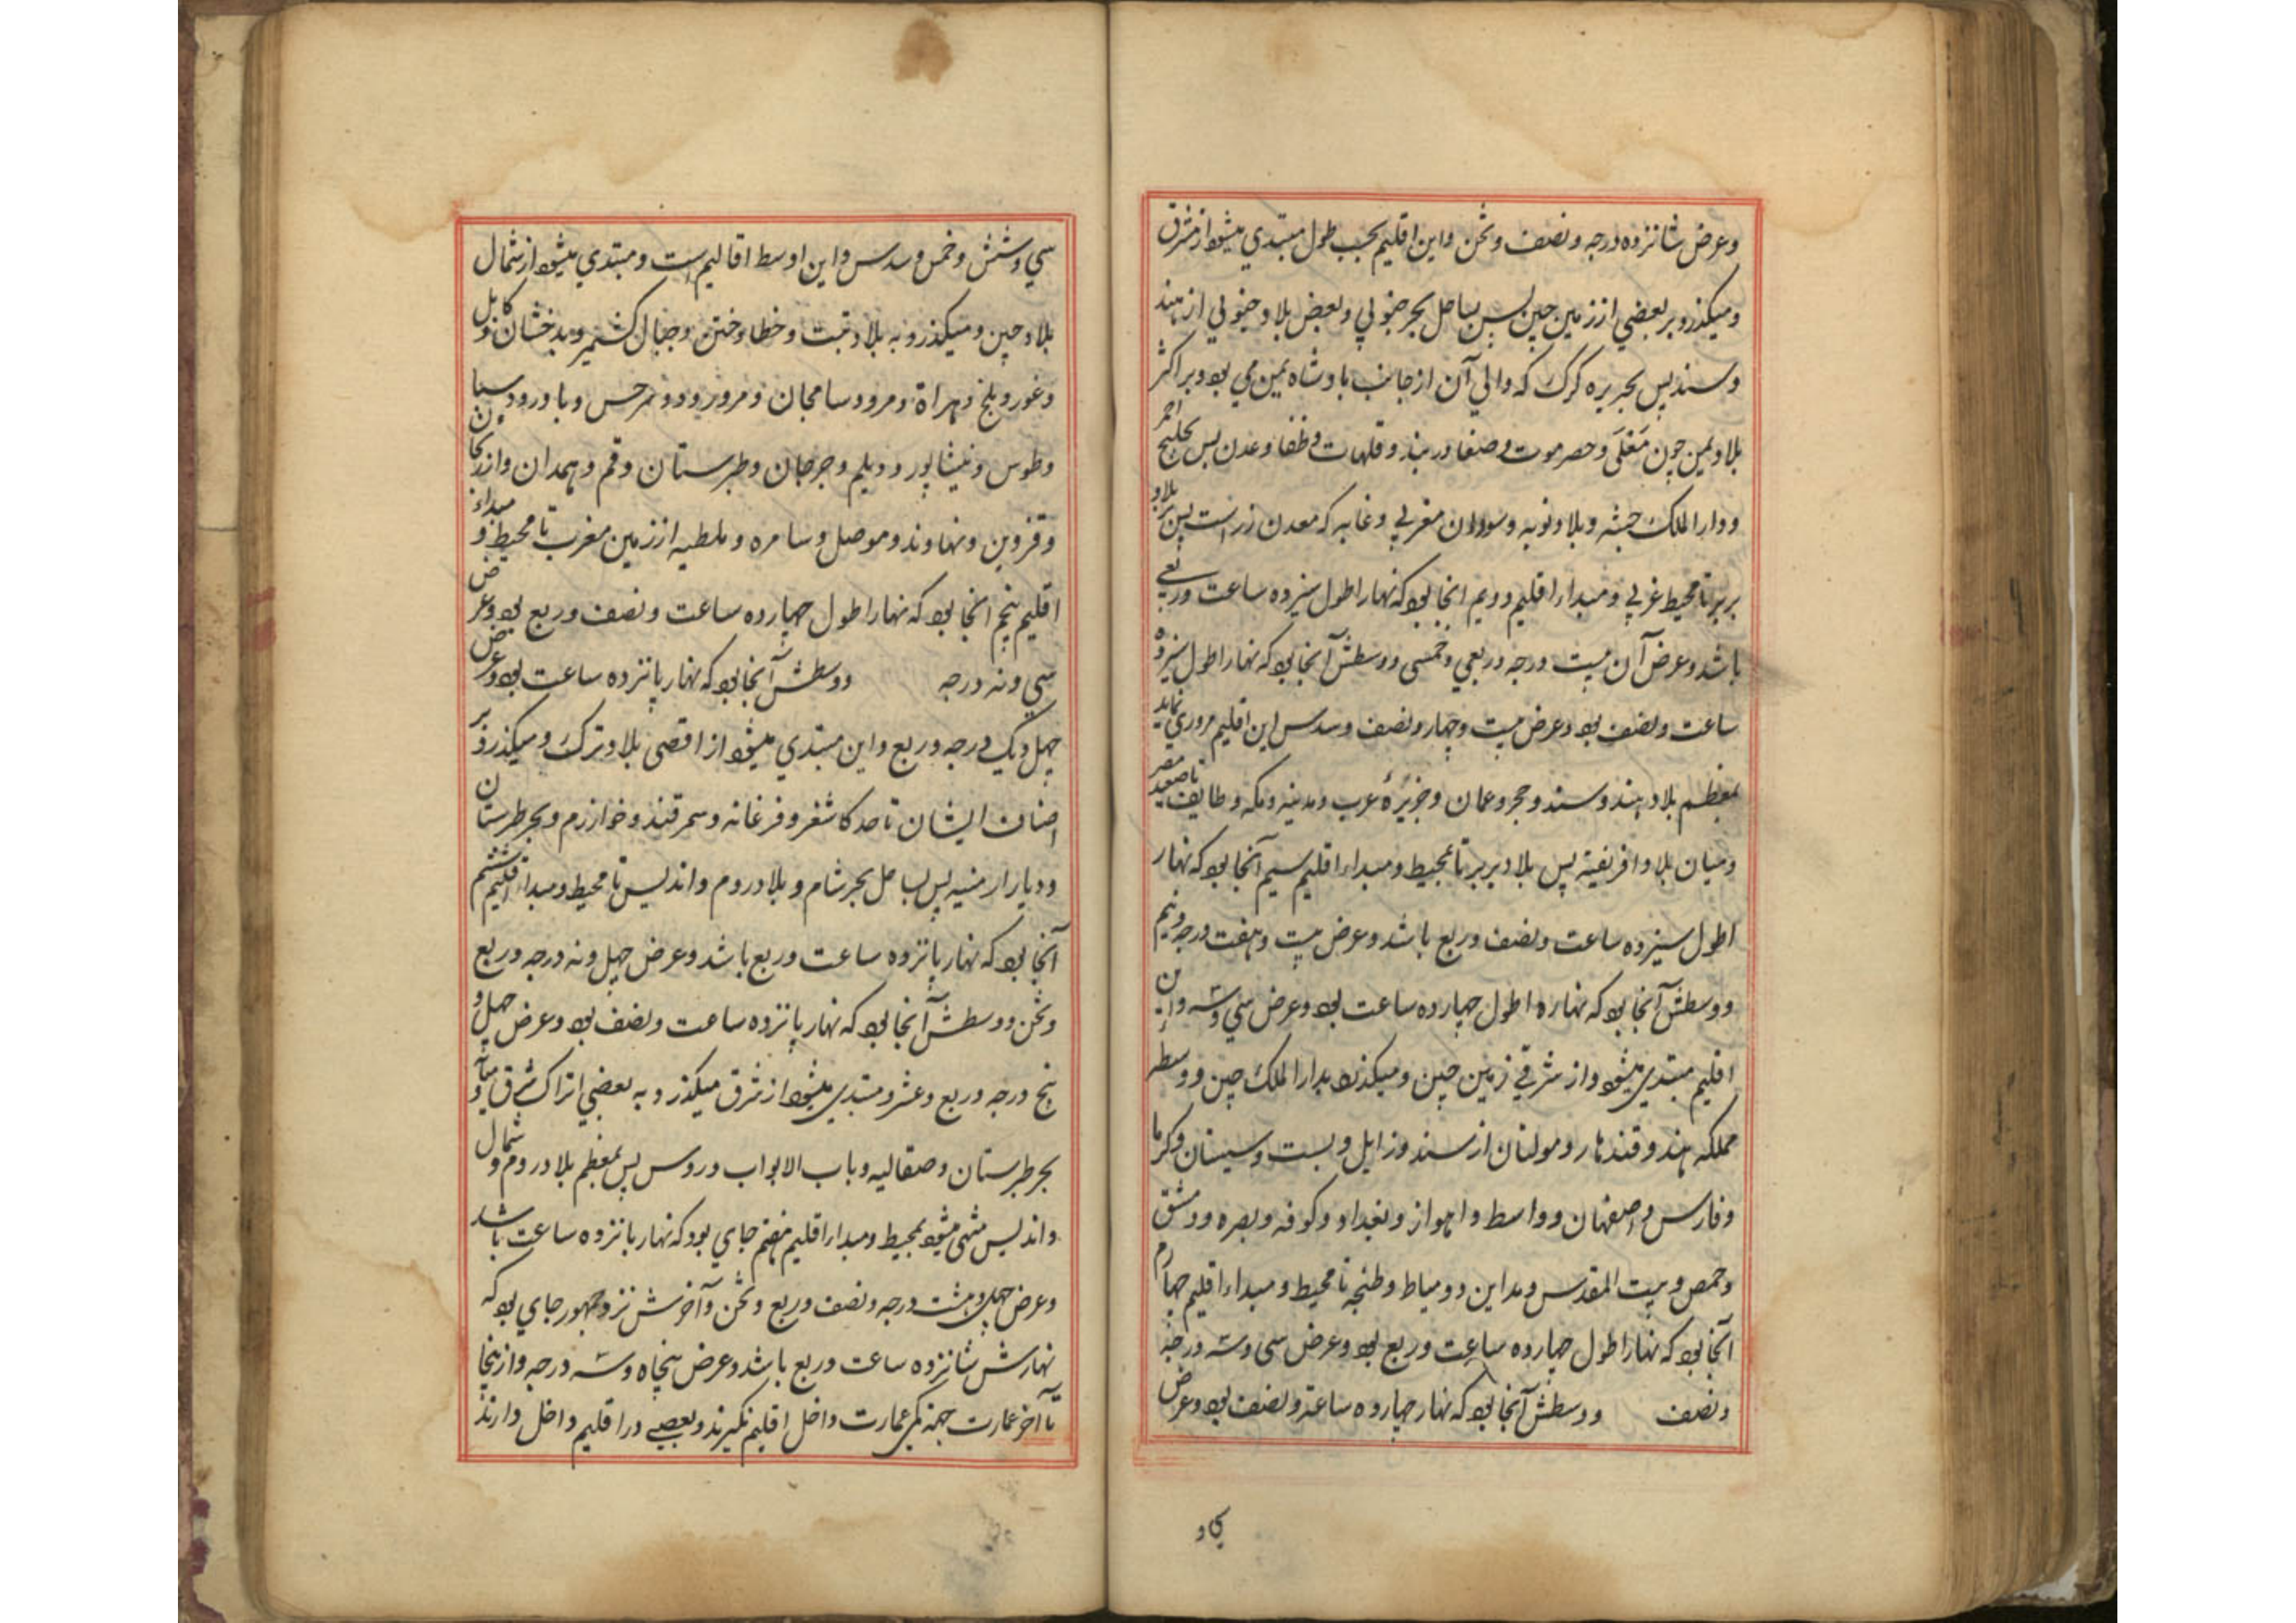 وعرض شانزده درجه ونصف وثمن واین اقلیم بحسب طول مبتدي میشود از مشرق
ومیکذرد بر بعضي از زمین چین پس بساحل بحر جنوبي وبعض بلاد جنوبي از هند
وسند پس بجزیره کرک که والي آن از جانب بادشاه یمین مي بود وبر اکثر
بلاد یمن چون معلی وحصرموت وصنعا وزبید وقلهات وظفا وعدن پس بخلیج احمر
ودار الملک حبشه وبلاد نوبه وسودان مغربي وغانه که معدن زر است پس بر بلاد
بربر تا محیط غربي ومبداء اقلیم دویم انجا بود که نهار اطول سیزده ساعت وربعي
باشد وعرض آن بیست درجه وربعي وخمسی ووسطش آنجا بود که نهار اطول سیزده
ساعت ونصف بود وعرض بیست وچهار ونصف وسدس این اقلیم مروري نماید
بمعظم بلاد هند وسند وحجر وعمان وجزیرهٔ عرب ومدینه ومکه وطایف تا صعید مصر
ومیان بلاد افریقیة پس بلاد بربر تا بمحیط ومبداء اقلیم سیم آنجا بود که نهار
اطول سیزده ساعت ونصف وربع باشد وعرض بیست وهفت درجه ونیم
ووسطش آنجا بود که نهاره اطول چهارده ساعت بود وعرض سي وسه واین
اقلیم مبتدي میشود از شرقي زمین چین ومیکذرد بدار الملک چین ووسط
مملکه هند وقندهار ومولتان از سند وزابل وبست وسیستان وکرما
وفارس واصفهان وواسط واهواز وبغداد وکوفه وبصره ودمشق
وحمص وبیت المقدس ومداین ودمیاط وطنجه تا محیط ومبداء اقلیم چهارم
آنجا بود که نهار اطول چهارده ساعت وربع بود وعرض سی وسه درجه
ونصف ووسطش آنجا بود که نهار چهارده ساعة ونصف بود وعرض
سي وشش وخمس وسدس واین اوسط اقالیم است ومبتدي میشود از شمال
بلاد چین ومیکذرد به بلاد تبت وخطا وختن وجبال کشمیر وبدخشان وکابل
وغور وبلخ وهراة ومرو وسامجان ومرورود وسرخس وباورد وسبا
وطوس ونیشاپور ودیلم وجرجان وطبرستان وقم وهمدان واذربجان
وقزوین ونهاوند وموصل وسامره وملطیه از زمین مغرب تا محیط ومبداء
اقلیم پنجم انجا بود که نهار اطول چهارده ساعت ونصف وربع بود وعرض
سي ونه درجه ووسطش آنجا بود که نهار پانزده ساعت بود وعرض
چهل ویک درجه وربع واین مبتدي میشود از اقصی بلاد ترک ومیکذرد بر
اصناف ایشان تا حد کاشغر وفرغانه وسمرقند وخوارزم وبحر طبرستان
ودیار ارمنیه پس بساحل بحر شام وبلاد روم واندلس تا محیط ومبداء اقلیم ششم
آنجا بود که نهار پانزده ساعت وربع باشد وعرض چهل ونه درجه وربع
وثمن ووسطش آنجا بود که نهار پانزده ساعت ونصف بود وعرض چهل و
پنج درجه وربع وعشر ومبتدي میشود از شرق میکذرد به بعضي اتراک شرق
بحر طبرستان وصقالیه وباب الابواب وروس پس بمعظم بلاد روم وشمال
واندلس منتهی میشود بمحیط ومبداء اقلیم هفتم جاي بود که نهار پانزده ساعت باشد
وعرض چهل وهشت درجه ونصف وربع وثمن وآخرش نزد جمهور جاي بود که
نهارش شانزده ساعت وربع باشد وعرض پنجاه وسه درجه وازینجا
تا آخر عمارت عمارت داخل اقلیم نکیرند وبعضے در اقلیم داخل دارند